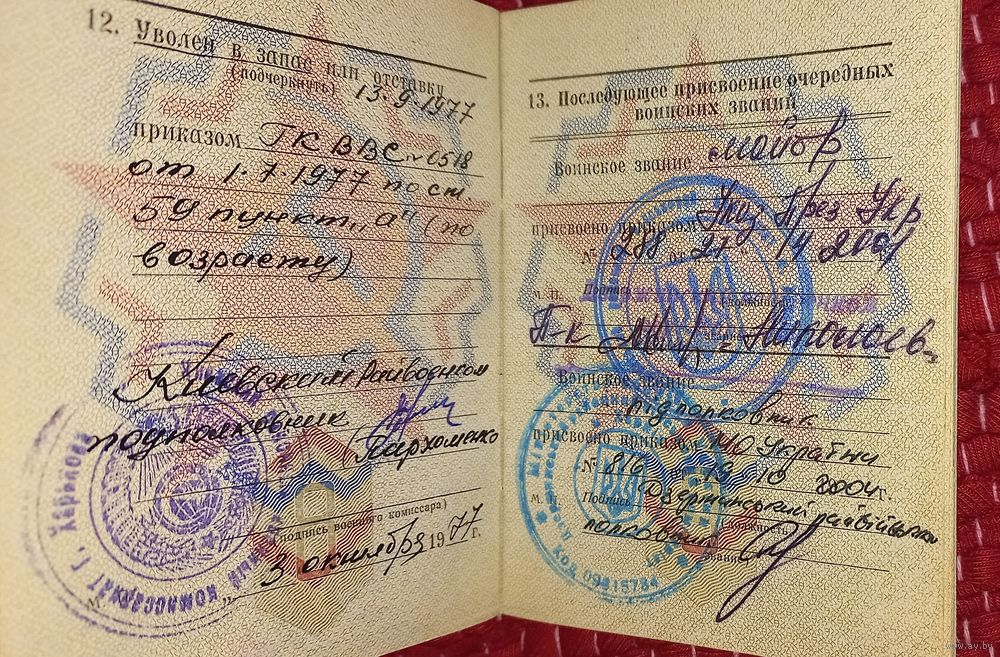 12. Уволен в запас или отставку
(подчеркнуть) 13·9·1977
приказом ГК ВВС № 0518
от 1·7·1977 по ст.
59 пункт „а" (по
возрасту)
Киевский Райвоенком
подполковник
Пархоменко
(подпись военного комиссара)
3 октября 1977 г.
М.
13. Последующее присвоение очередных
воинских званий
Воинское звание майор
присвоено приказом Указ През Укр
№ 288 от 27 2001
М. П. Подпись
П-к
Воинское звание
підполковник
присвоено приказом МО України
№ 816 10 2004 г.
М. Подпись Дзержинський
(должность
полковник звание)
г. Харькова
комиссариат
Код 09815784
www.ay.by